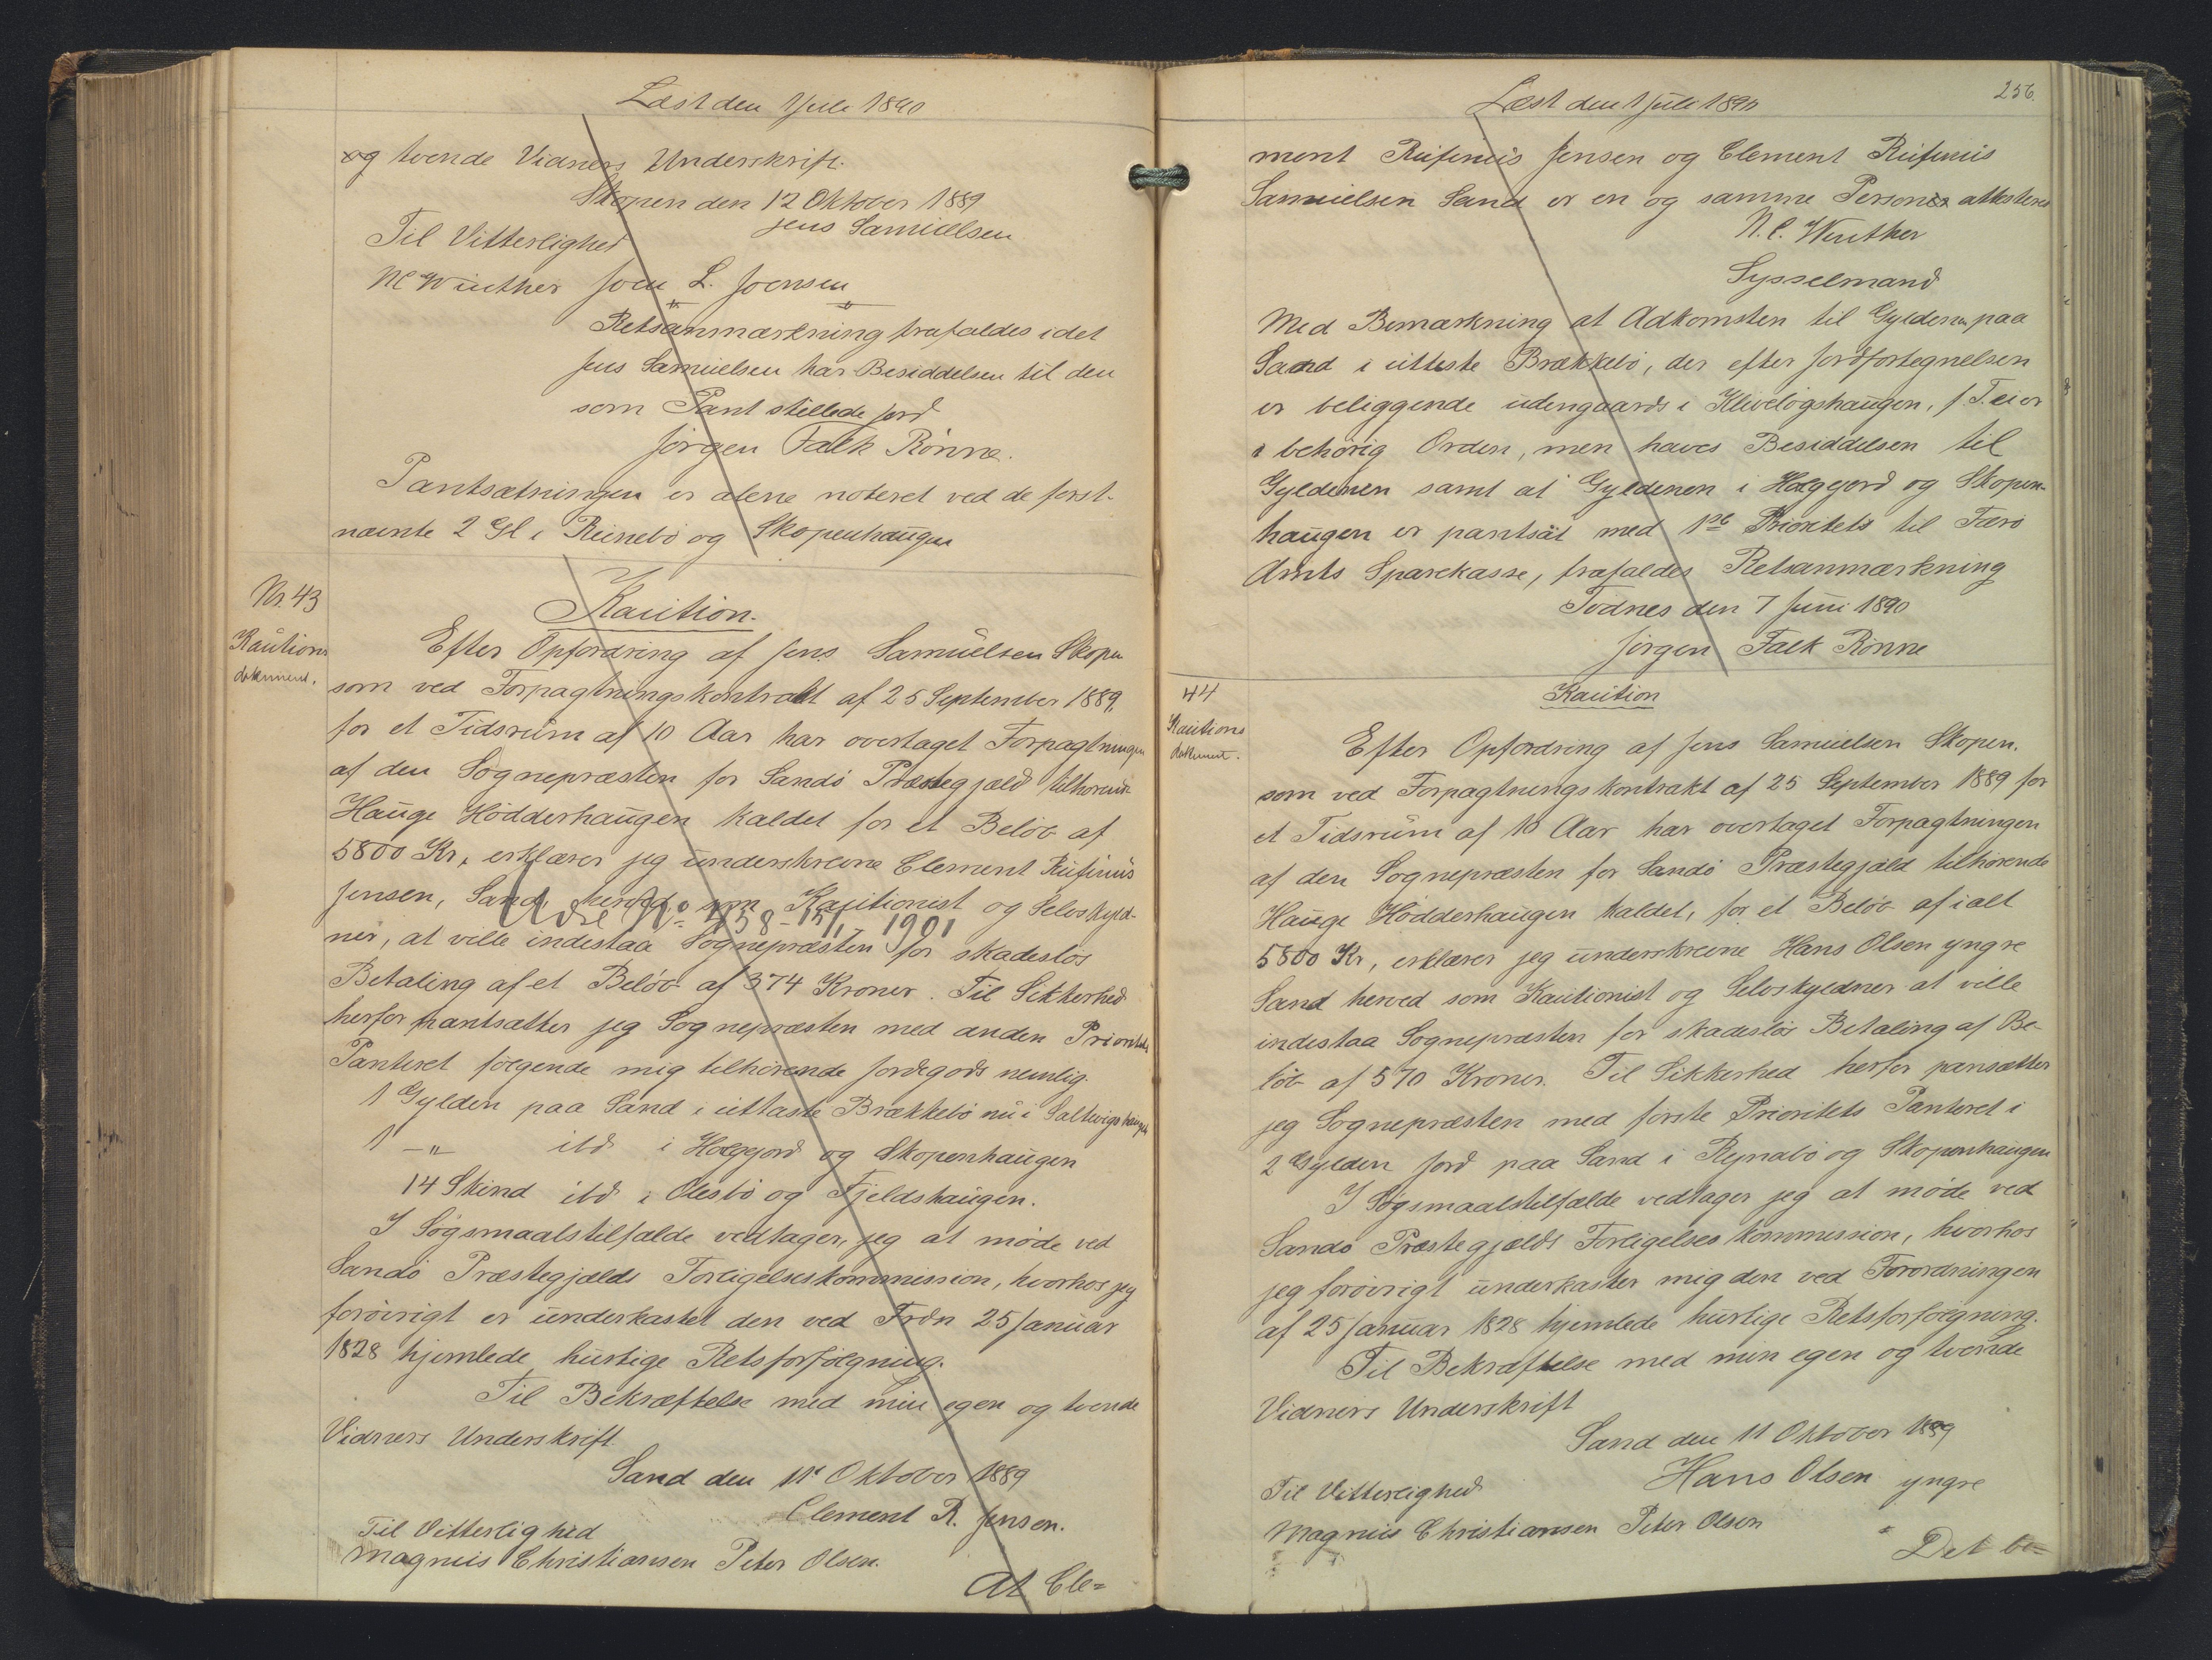 Læst den 1 Juli 1890
og tvende Vidners Underskrift.
Skopen den 12 Oktober 1889
Jens Samuelsen
Til Vitterlighed
NC Winther Joen L. Joensen
Retsanmærkning frafaldes idet
Jens Samuelsen har Besiddelsen til den
som Pant stillede Jord
Jörgen Falk Rönne.
Pantsætningen er alene noteret ved de først-
nævnte 2 Gl i Reinebö og Skopenhaugen
Nr. 43
Kautions
dokument.
Kaution.
Efter Opfordring af Jens Samuelsen Skopen
som ved Forpagtningskontrakt af 25 September 1889,
for et Tidsrum af 10 Aar har overtaget Forpagtningen
af den Sognepræsten for Sandö Præstegjæld tilhørende
Hauge Hödderhaugen kaldet for et Beløb af
5800 Kr, erklærer jeg underskrevne Clement Rufinus
Jensen, Sand, herved som Kautionist og Selvskyld-
ner, at ville indestaa Sognepræsten for skadeslös
Udsl No 458 - 15/1 1901
Betaling af et Belöb af 374 Kroner. Til Sikkerhed
herfor pantsætter jeg Sognepræsten med anden Prioritets
Panteret følgende mig tilhörende Jordegods nemlig.
1 Gylden paa Sand i uttaste Brækkebö nu i Saltvigshaugen
1 -"- ibd i Hølgejord og Skopenhaugen
14 Skind ibd i Olesbö og Fjeldshaugen.
I Sögsmaalstilfælde vedtager jeg at møde ved
Sandö Præstegjælds Forligelseskommission, hvorhos jeg
foröivrigt er underkastet den ved Frdn 25 Januar
1828 hjemlede hurtige Retsforfölgning.
Til Bekræftelse med min egen og tvende
Vidners Underskrift
Sand den 11 Oktober 1889
Clement R. Jensen.
Til Vitterlighed
Magnus Christiansen Peter Olsen.
At Cle=
256.
Læst den 1 Juli 1890
ment Rufinus Jensen og Clement Rufinus
Samuelsen Sand er en og samme Person attesteres
N. C. Winther
Sysselmand
Med Bemærkning at Adkomsten til Gylden paa
Sand i utteste Brækkebö, der efter Jordfortegnelsen
er beliggende udengaards i Klivelögshaugen, f. T. ei er
i behörig Orden, men haves Besiddelsen til
Gyldenen samt at Gyldenen i Hølgejord og Skopen-
haugen er pantsat med 1ste Prioritets til Færö
Amts Sparekasse, frafaldes Retsanmærkning
Todnes den 7 Juni 1890
Jörgen Falk Rönne
44
Kautions
dokument.
Kaution
Efter Opfordring af Jens Samuelsen Skopen.
som ved Forpagtningskontrakt af 25 September 1889 for
et Tidsrum af 10 Aar har overtaget Forpagtningen
af den Sognepræsten for Sandö Præstegjæld tilhørende
Hauge Hödderhaugen kaldet, for et Belöb af ialt
5800 Kr, erklærer jeg underskrevne Hans Olsen yngre
Sand herved som Kautionist og Selvskyldner at ville
indestaa Sognepræsten for skadeslös Betaling af Be-
löb af 570 Kroner. Til Sikkerhed herfor pansætter
jeg Sognepræsten med første Prioritets Panteret i
2 Gylden Jord paa Sand i Rejnabö og Skopenhaugen
I Sögsmaalstilfælde vedtager jeg at möde ved
Sandö Præstegjælds Forligelses kommission, hvorhos
jeg foröivrigt underkaster mig den ved Forordningen
af 25 Januar 1828 hjemlede hurtige Retsforfölgning.
Til Bekræftelse med min egen og tvende
Vidners Underskrift
Sand den 11 Oktober 1889
Hans Olsen yngre
Til Vitterlighed
Magnus Christiansen Peter Olsen
Det be=